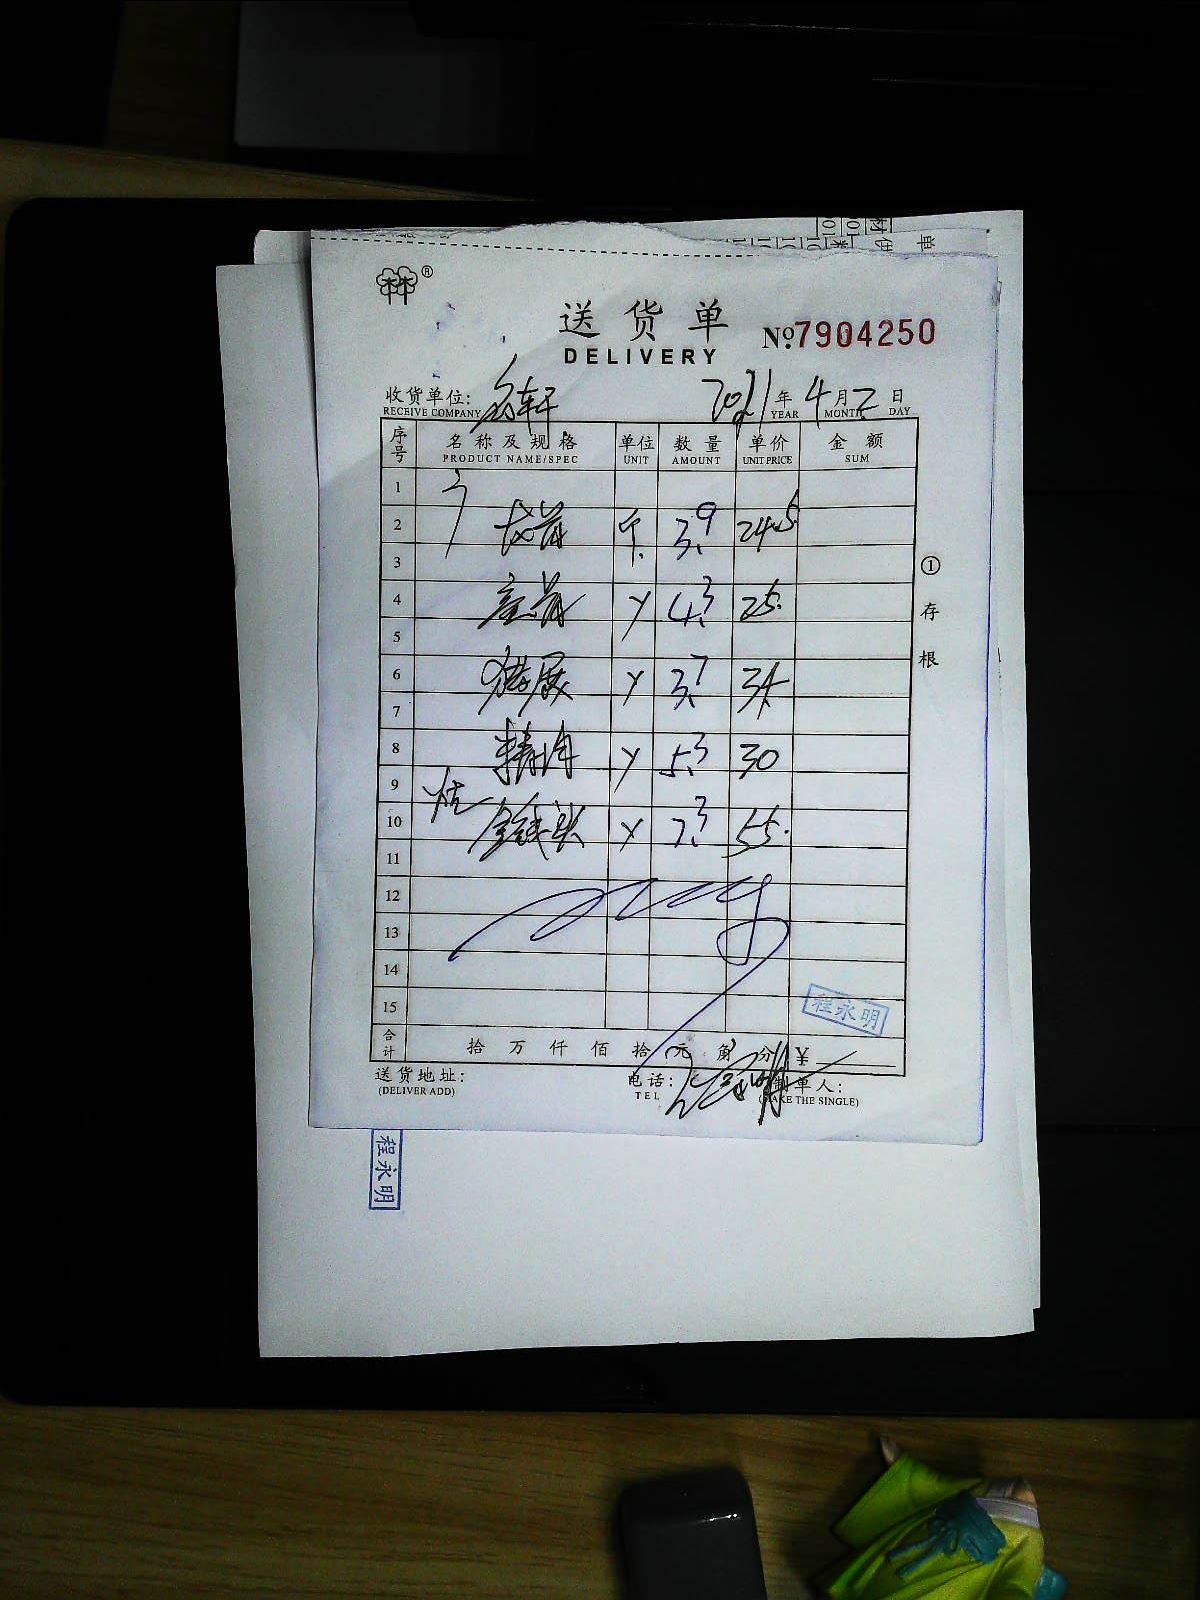 ®
送货单
№7904250
DELIVERY
收货单位: 轩 2021年4月2日
RECEIVE COMPANY YEAR MONTH DAY
序号 名称及规格 单位 数量 单价 金额
PRODUCT NAME/SPEC UNIT AMOUNT UNIT PRICE SUM
1
2 斤 3.9 24.5
3
4 4.3 25
5
6 猪展 3.7 34
7
8 精肉 5.3 30
9
10 头 7.3 55
11
12
13
14
15
①存根
程永明
合计 拾万仟佰拾元角分 ¥
送货地址: 电话: 制单人:
(DELIVER ADD) TEL (MAKE THE SINGLE)
程永明